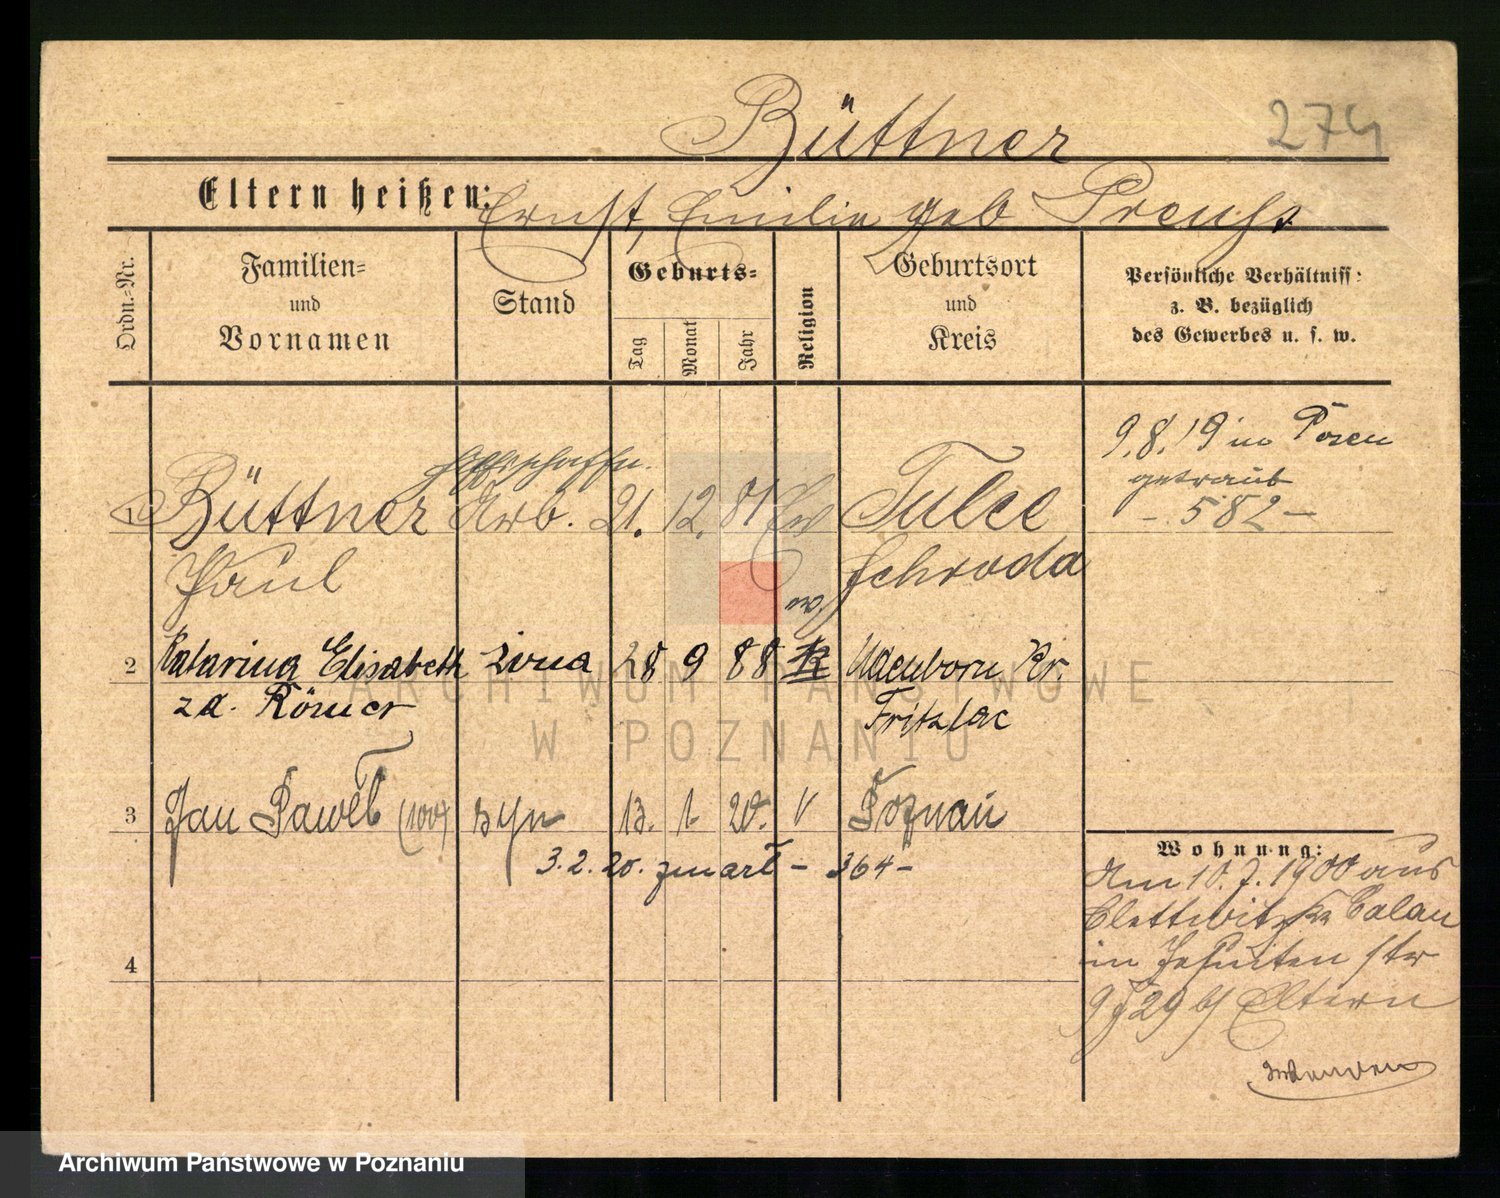 Büttner
274
Eltern heißen: Ernst, Emilie geb Preuß
Ordn.-Nr.
Familien=
und
Vornamen
Stand
Geburts=
Tag
Monat
Jahr
Religion
Geburtsort
und
Kreis
Persönliche Verhältniss:
z. B. bezüglich
des Gewerbes u. s. w.
9.8.19 in Posen
getraut
- 582 -
1 Büttner Arb. 21. 12. 81 Ev Tulce
Paul Schroda
2 Katarina Elisabeth żona 28 9 88 Udenborn Kr.
zd. Römer Fritzlar
3 Jan Paweł syn 13. 1 20. Poznań
3.2.20. zmarł - 364 -
4
Wohnung:
Am 10.7.1900 aus
Clettwitz Kr Calau
in Jesuiten str
9 II 29 b/ Eltern
ARCHIWUM PAŃSTWOWE
W POZNANIU
Archiwum Państwowe w Poznaniu